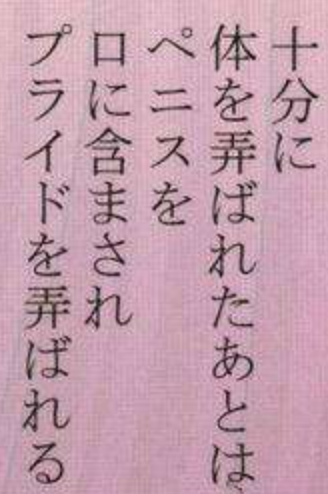 十分に
体を弄ばれたあとは
ペニスを
口に含まされ
プライドを弄ばれる